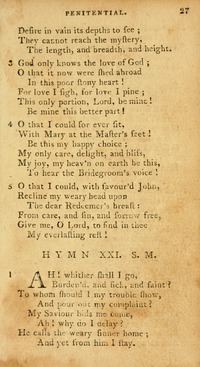 PENITENTIAL. 27
Deſire in vain its depths to ſee ;
They cannot reach the myſtery,
The length, and breadth, and height.
3 God only knows the love of God ;
O that it now were ſhed abroad
In this poor ſtony heart !
For love I ſigh, for love I pine ;
This only portion, Lord, be mine !
Be mine this better part !
4 O that I could for ever ſit,
With Mary at the Maſter's feet !
Be this my happy choice ;
My only care, delight, and bliſs,
My joy, my heav'n on earth be this,
To hear the Bridegroom's voice !
5 O that I could, with favour'd John,
Recline my weary head upon
The dear Redeemer's breaſt :
From care, and ſin, and ſorrow free,
Give me, O Lord, to find in thee
My everlaſting reſt !
HYMN XXI. S. M.
1 AH ! whither ſhall I go,
Burden'd, and ſick, and faint ?
To whom ſhould I my trouble ſhow,
And pour out my complaint ?
My Saviour bids me come,
Ah ! why do I delay ?
He calls the weary ſinner home ;
And yet from him I ſtay.